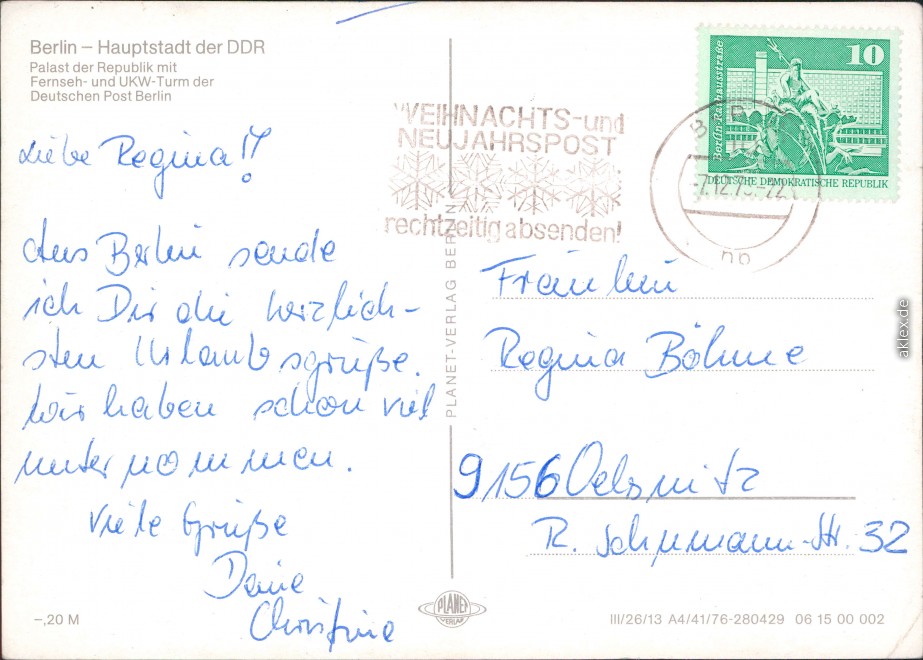 Berlin – Hauptstadt der DDR
Palast der Republik mit
Fernseh- und UKW-Turm der
Deutschen Post Berlin
Liebe Regina!!
Aus Berlin sende
ich Dir die herzlich-
sten Urlaubsgrüße.
Wir haben schon viel
unternommen.
Viele Grüße
Deine
Christine
–,20 M
PLANET-VERLAG BERLIN
WEIHNACHTS-und
NEUJAHRSPOST
rechtzeitig absenden!
10
Berlin-Rathausstraße
DEUTSCHE DEMOKRATISCHE REPUBLIK
Fräulein
Regina Böhme
9156 Oelsnitz
R. Schumann-Str. 32
PLANET
VERLAG
III/26/13 A4/41/76-280429 06 15 00 002
aklex.de